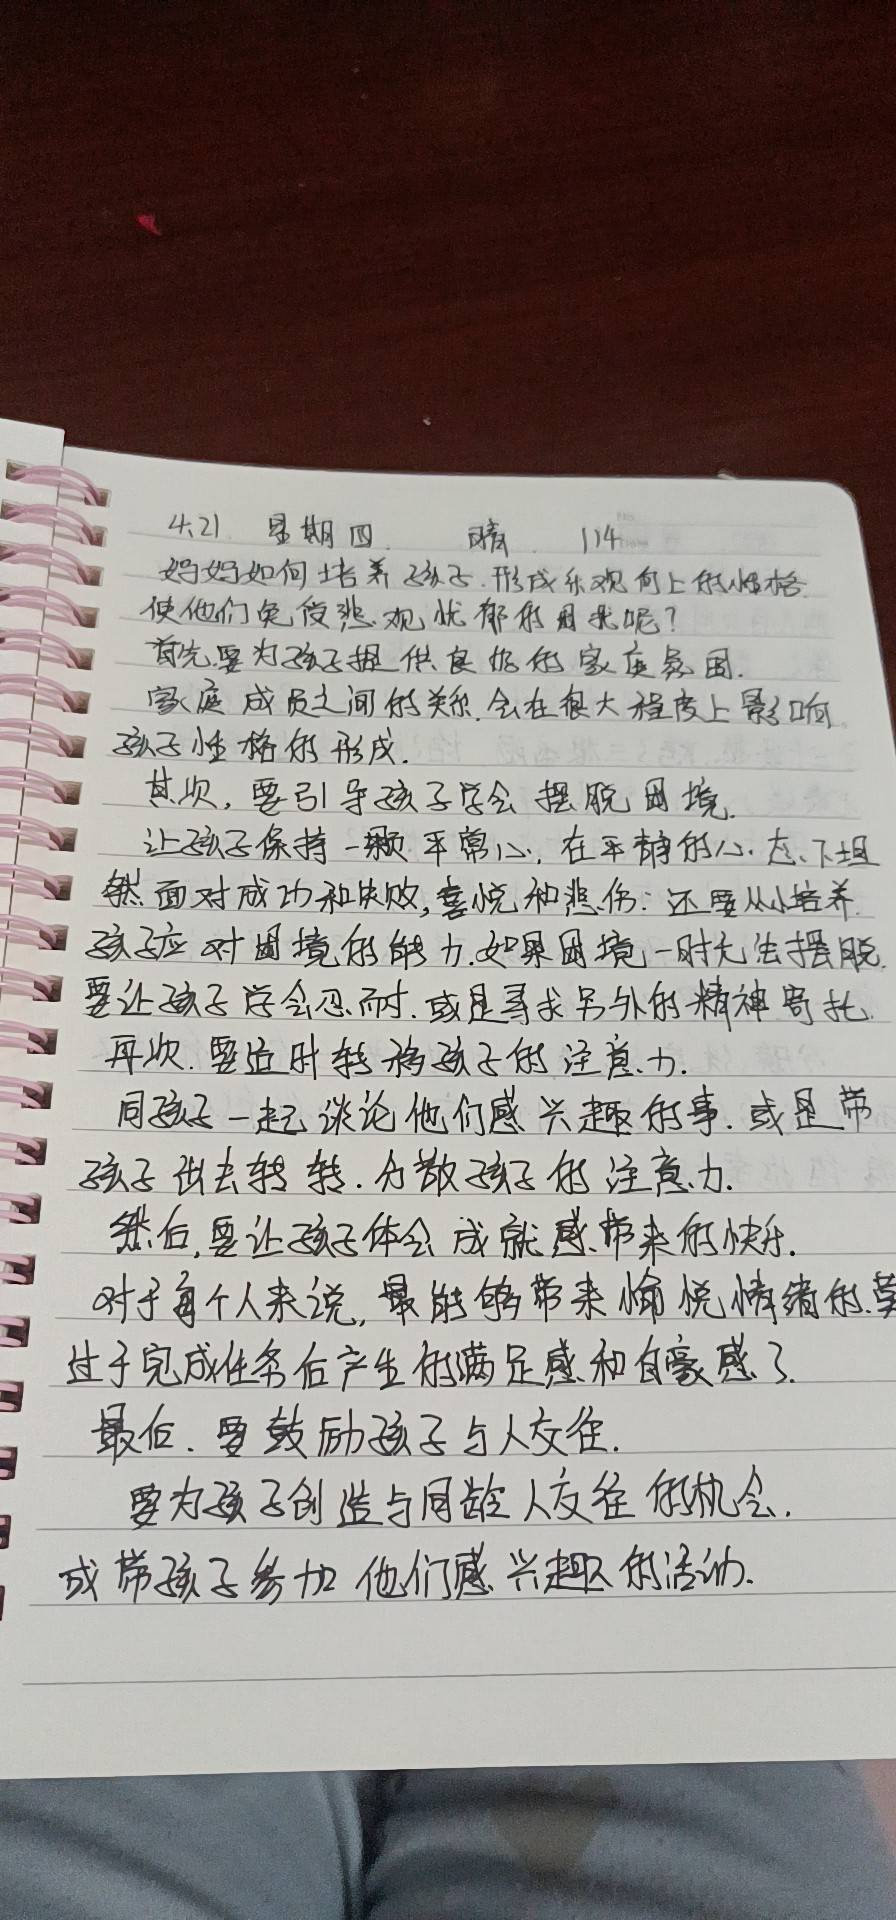 4.21 星期四 晴 114
妈妈如何培养孩子.形成乐观向上的性格.
使他们免受悲观忧郁的困扰呢?
首先要为孩子提供良好的家庭氛围.
家庭成员之间的关系.会在很大程度上影响
孩子性格的形成.
其次,要引导孩子学会摆脱困境.
让孩子保持一颗平常心,在平静的心态下坦
然面对成功和失败,喜悦和悲伤;还要从小培养
孩子应对困境的能力.如果困境一时无法摆脱.
要让孩子学会忍耐.或是寻求另外的精神寄托.
再次.要适时转移孩子的注意力.
同孩子一起谈论他们感兴趣的事.或是带
孩子出去转转.分散孩子的注意力.
然后,要让孩子体会成就感带来的快乐.
对于每个人来说,最能够带来愉悦情绪的莫
过于完成任务后产生的满足感和自豪感了.
最后.要鼓励孩子与人交往.
要为孩子创造与同龄人交往的机会.
或带孩子参加他们感兴趣的活动.